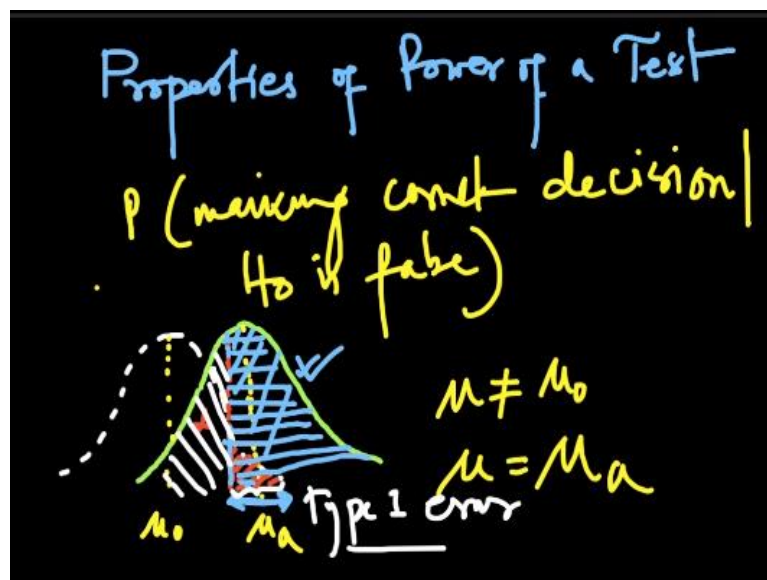 Properties of Power of a Test
P (making correct decision |
H₀ is false)
μ ≠ μ₀
μ = μₐ
Type 1 error
μ₀ μₐ